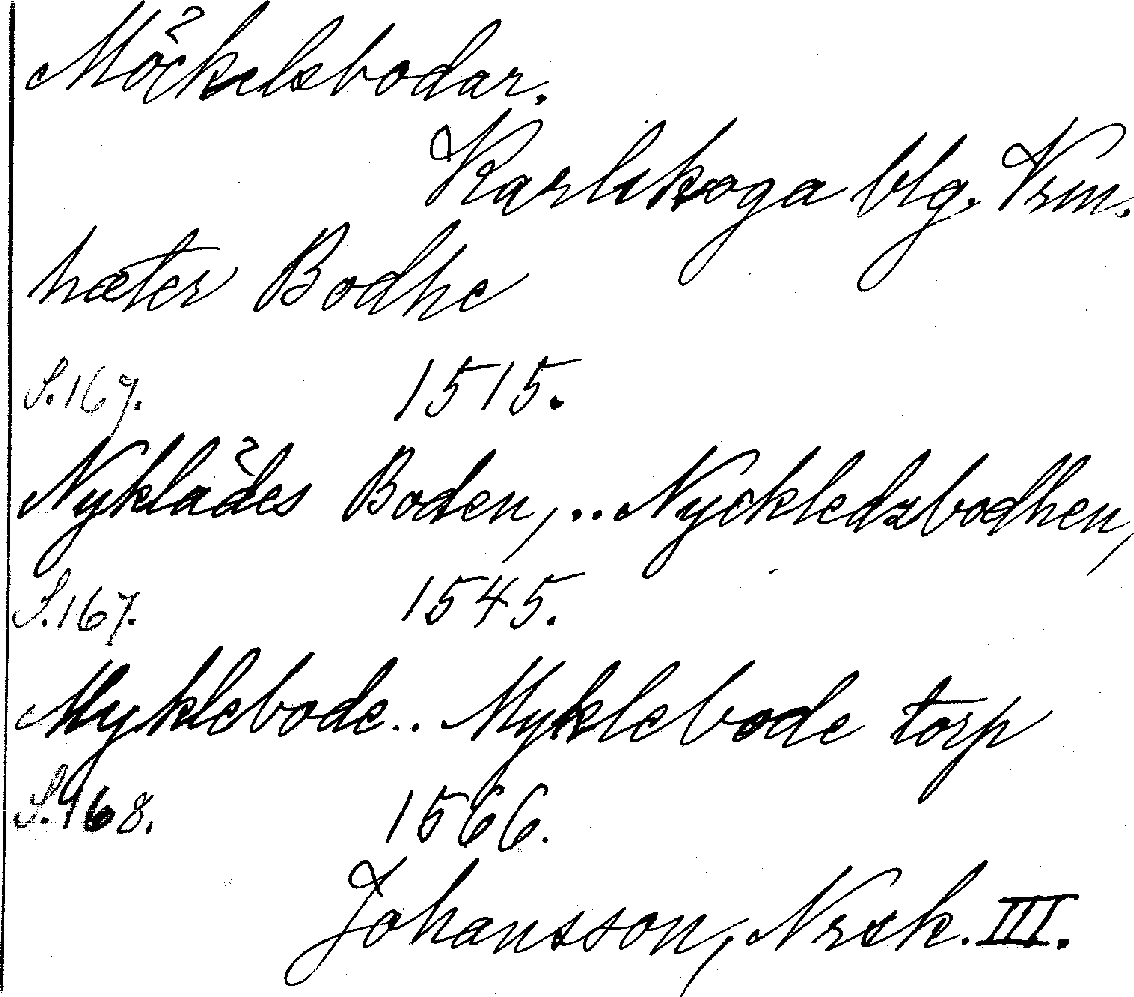 Möckelsbodar.
Karlskoga blg. Vrm.
hæter Bodhe
S.167. 1515.
Nyklådes Boden, .. Nyckledzbodhen,
S.167. 1545.
Myklebode .. Myklebode torp
S.168. 1566.
Johansson, Nrsk. III.